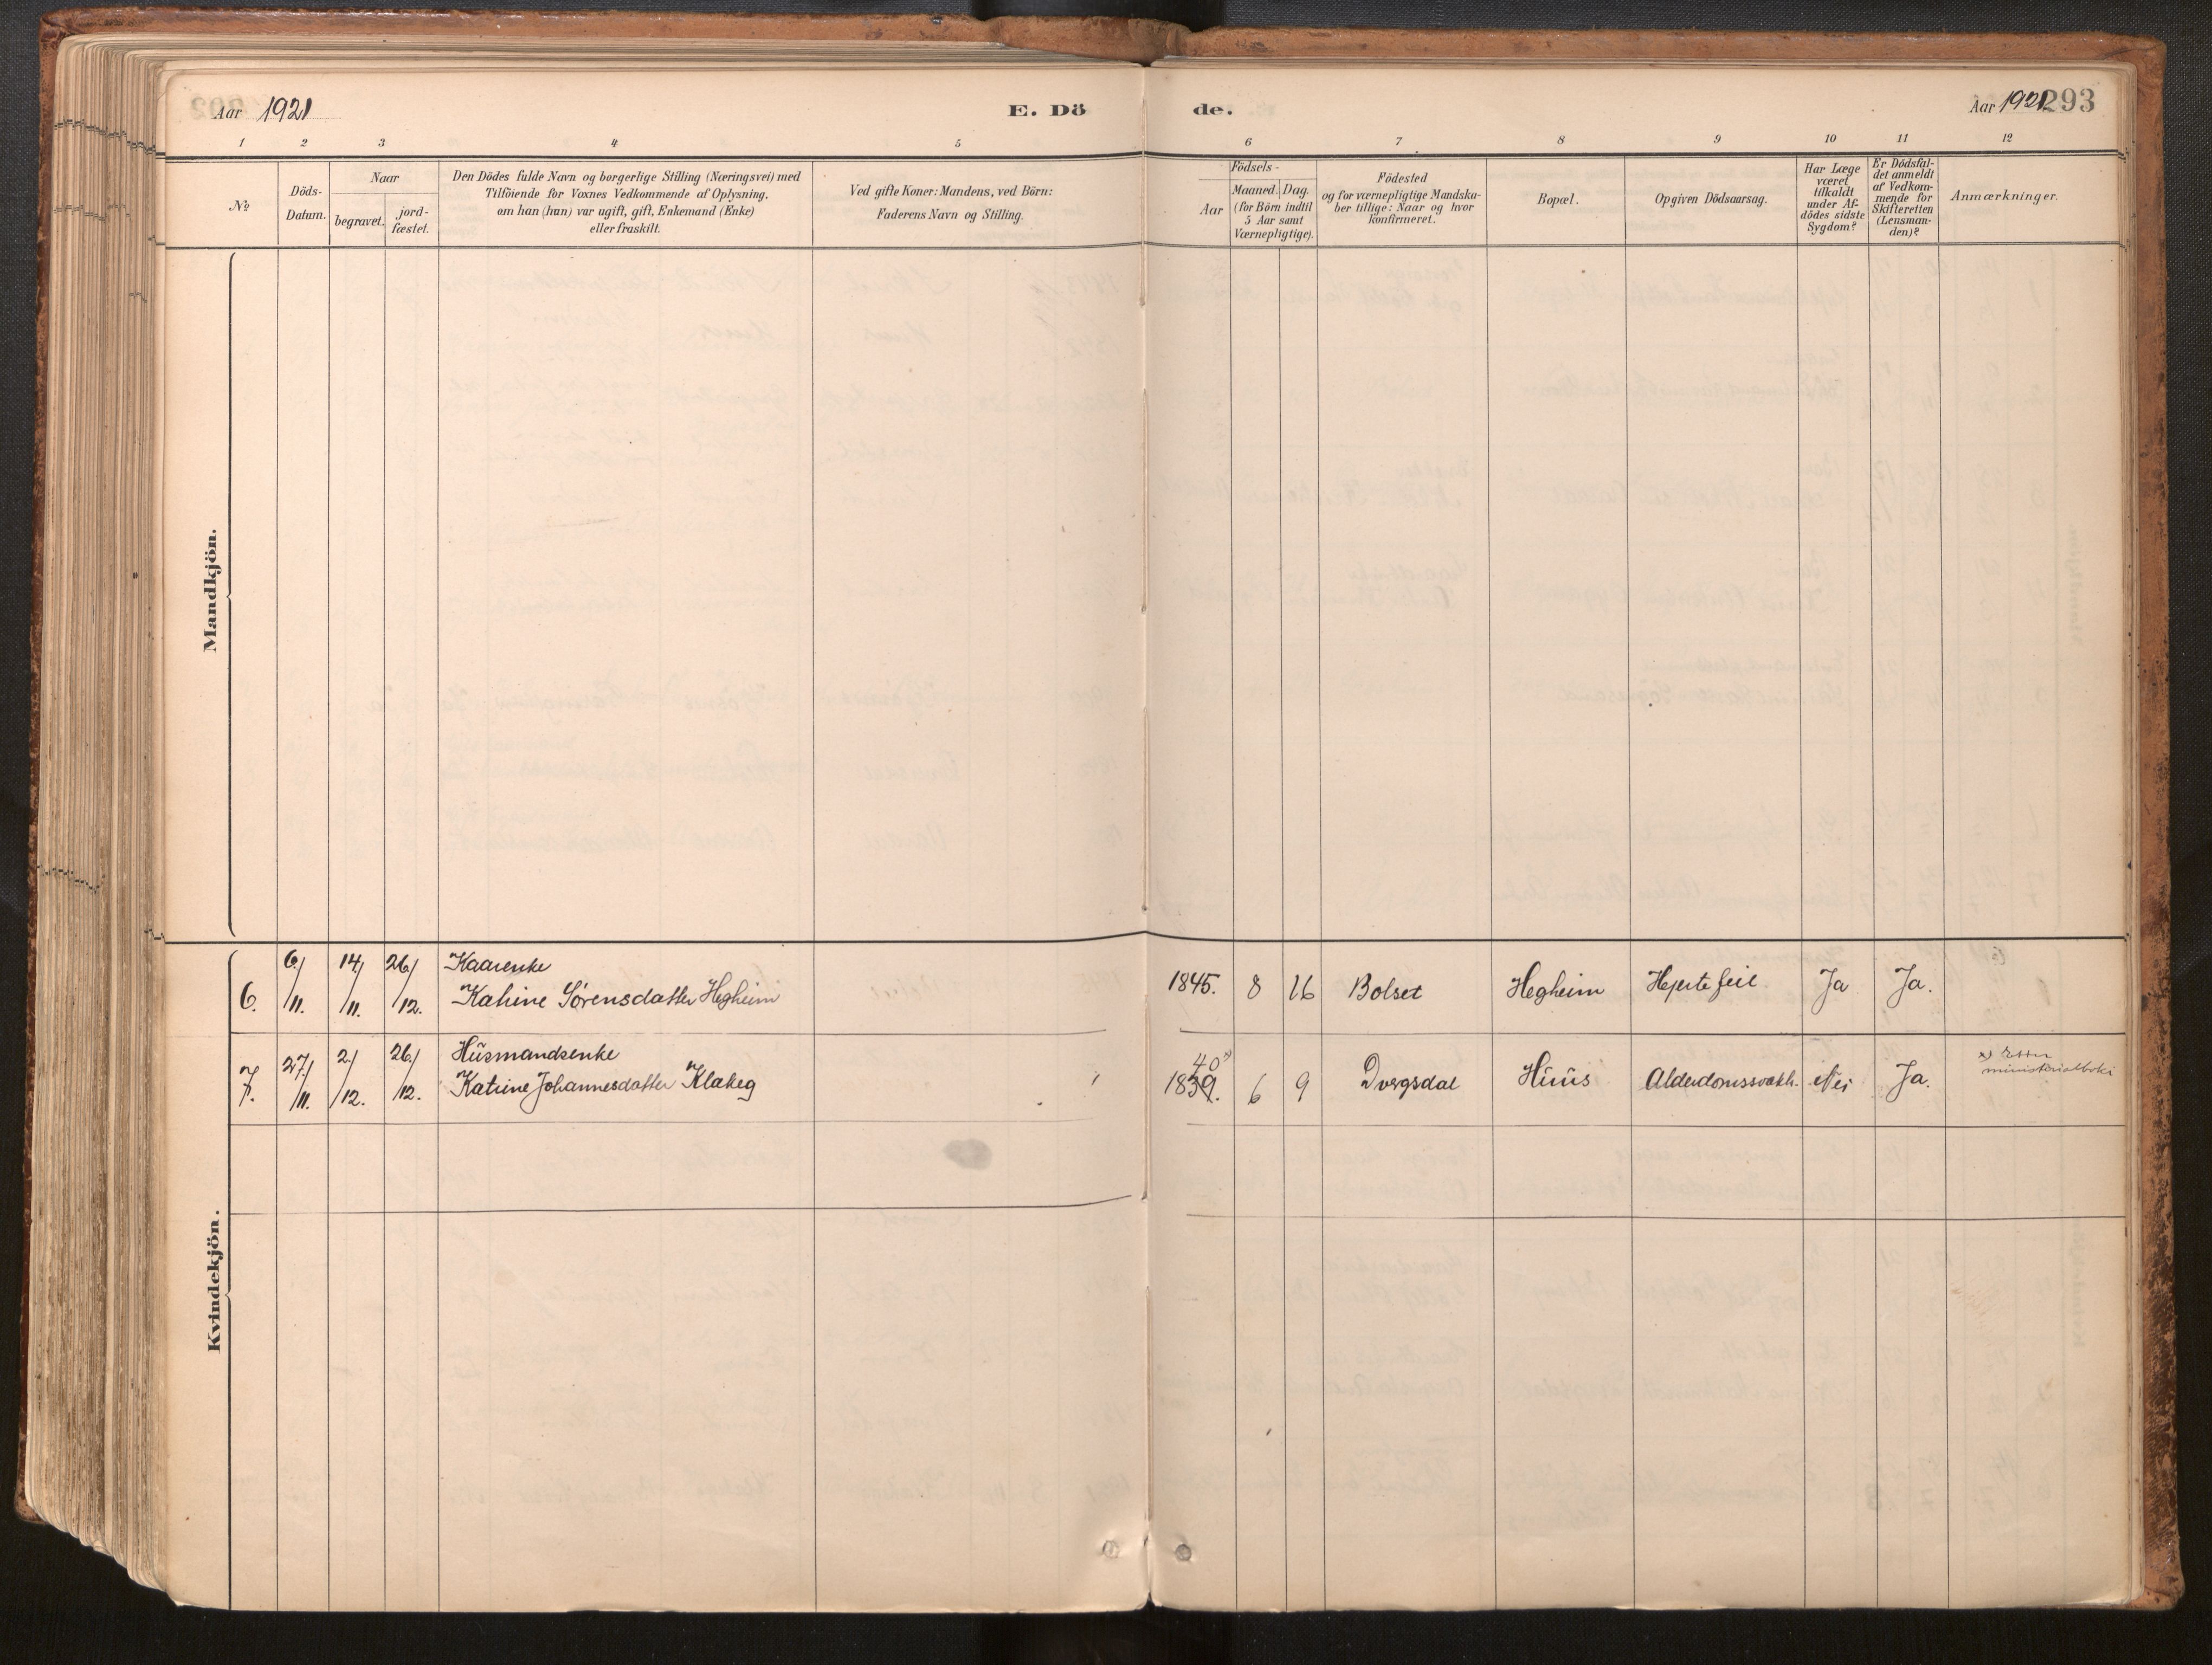 Aar 1921
E. Dö
de.
Aar 1921.
293
1 2 3 4 5 6 7 8 9 10 11 12
№
Döds-
Datum.
Naar
begravet.
jord-
fæstet.
Den Dödes fulde Navn og borgerlige Stilling (Næringsvei) med
Tilföiende for Voxnes Vedkommende af Oplysning.
om han (hun) var ugift, gift, Enkemand (Enke)
eller fraskilt.
Ved gifte Koner: Mandens, ved Börn:
Faderens Navn og Stilling.
Födsels-
Aar
Maaned. Dag.
(for Börn indtil
5 Aar samt
Værnepligtige).
Födested
og for værnepligtige Mandska-
ber tillige: Naar og hvor
konfirmeret.
Bopæl.
Opgiven Dödsaarsag.
Har Læge
været
tilkaldt
under Af-
dödes sidste
Sygdom?
Er Dödsfal-
det anmeldt
af Vedkom-
mende for
Skifteretten
(Lensman-
den)?
Anmærkninger.
Mandkjön.
Kvindekjön.
6. 6/11. 14/11. 26/12. Kaarenke
Katrine Sørensdatter Hegheim 1845. 8 26 Bolset Hegheim Hjertefeil Ja Ja.
7. 27/11. 2/12. 26/12. Husmandsenke
Katrine Johannesdatter Klakeg 1839. 40 x) 6 9 Dvergsdal Huus Alderdomssvakh. Nei Ja.
x) Etter
ministerialboki